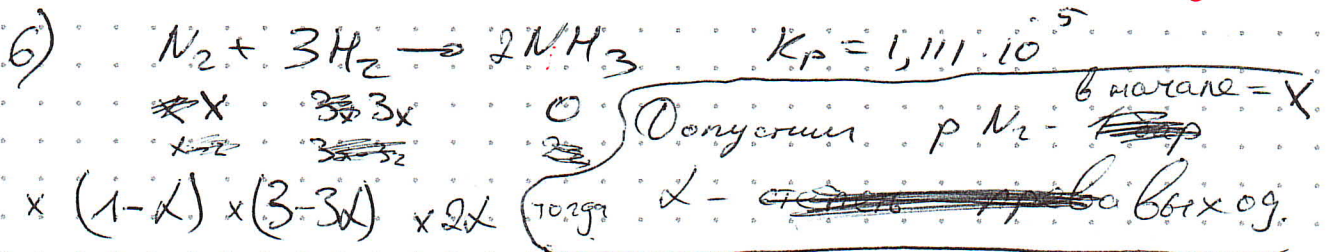 6) N₂ + 3H₂ → 2NH₃ Kp = 1,111·10⁵
x 3x 0 Допустим p N₂ - в начале = X
x (1-α) x(3-3α) x2α тогда α - выход.